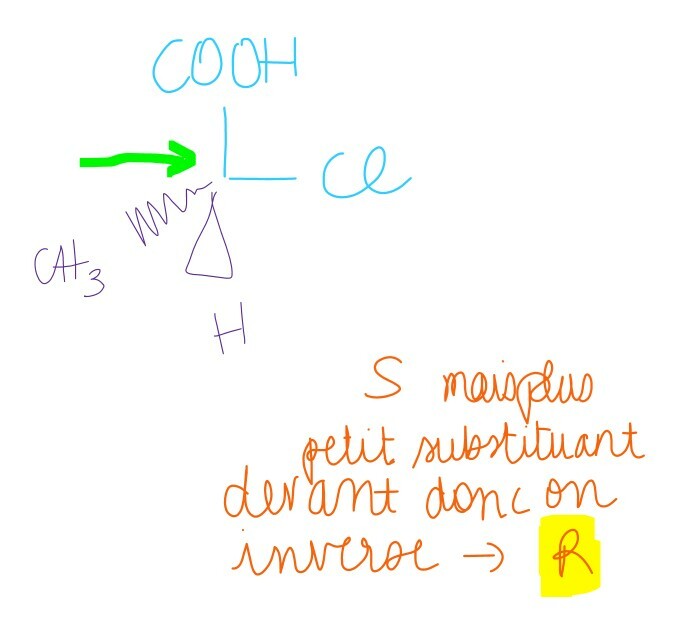 COOH
Cl
CH3
H
S mais plus
petit substituant
devant donc on
inverse → R